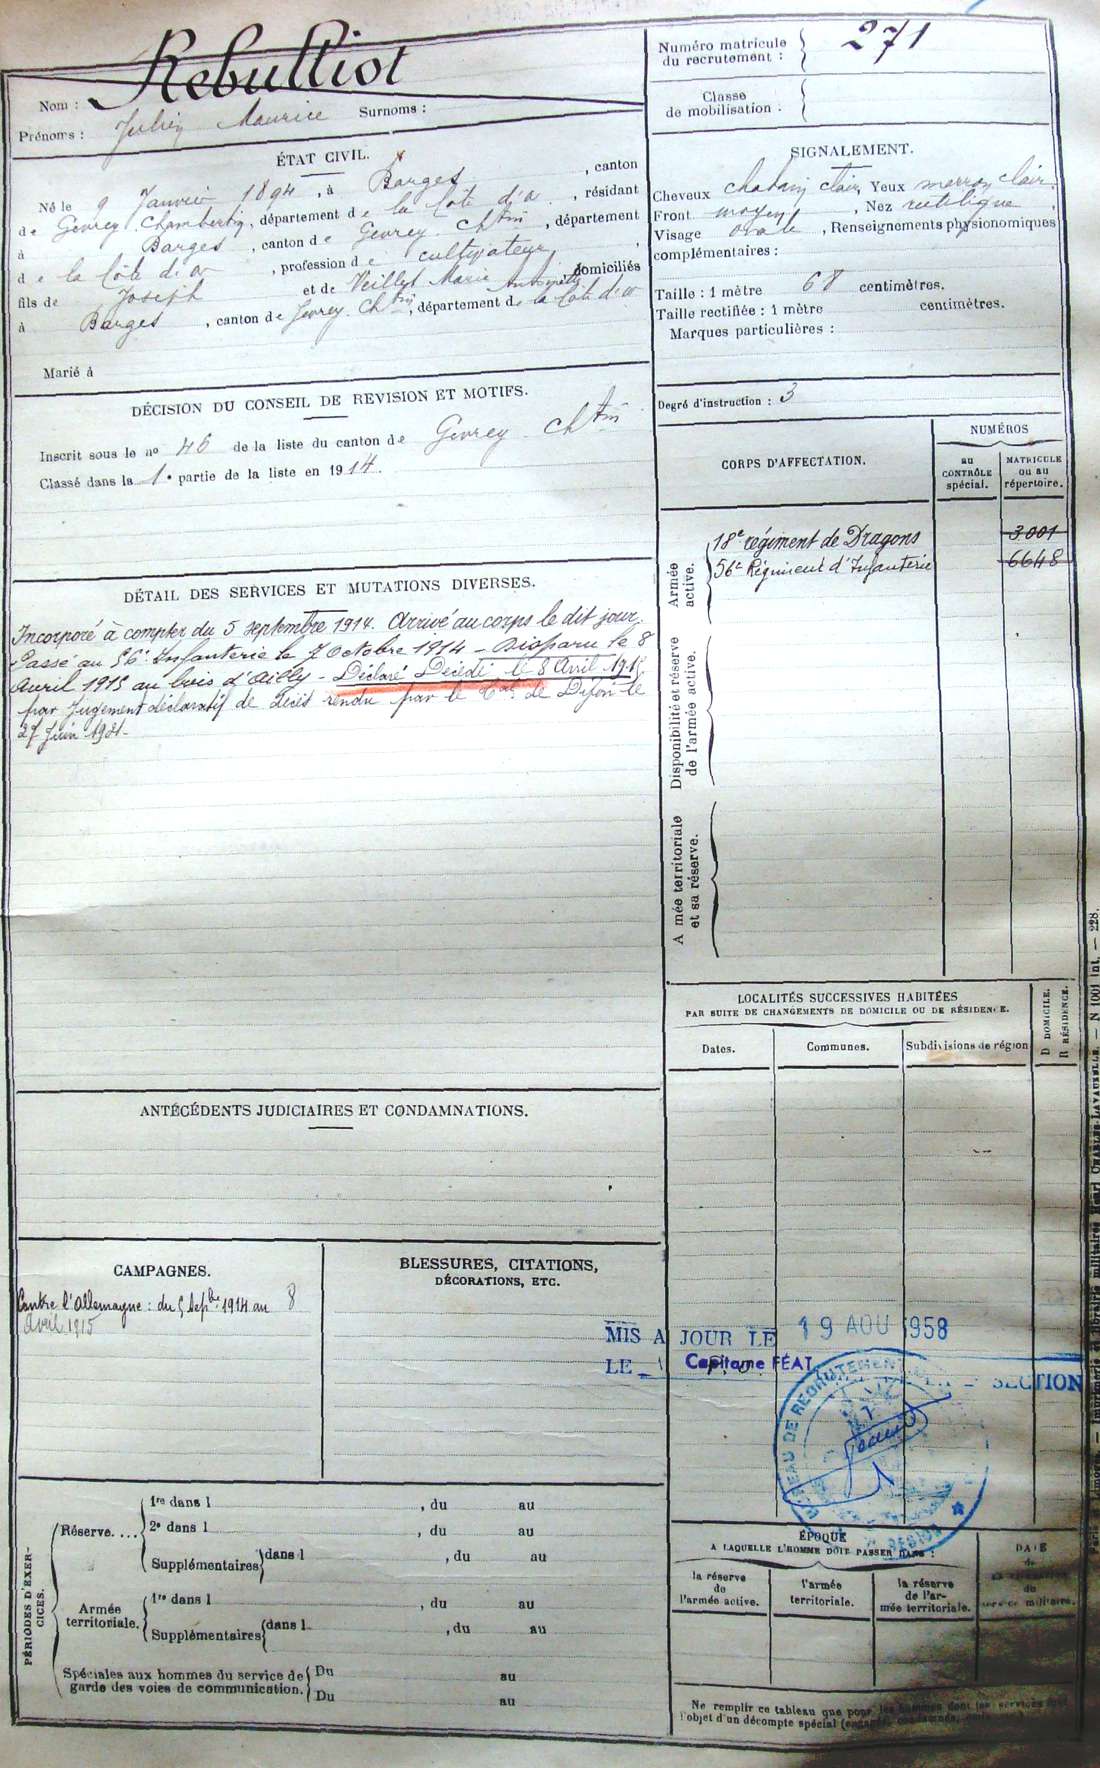 Nom : Rebulliot
Prénoms : Julien Maurice Surnoms :
Numéro matricule du recrutement : 271
Classe de mobilisation :
ÉTAT CIVIL.
Né le 9 Janvier 1894, à Barges, canton
de Gevrey Chambertin, département de la Côte d'or, résidant
à Barges, canton de Gevrey Chtin, département
de la Côte d'or, profession de cultivateur,
fils de Joseph et de Veillet Marie Antoinette domiciliés
à Barges, canton de Gevrey Chtin, département de la Côte d'or
Marié à
SIGNALEMENT.
Cheveux chatain clair, Yeux marron clair,
Front moyen, Nez rectiligne,
Visage ovale, Renseignements physionomiques
complémentaires :
Taille : 1 mètre 68 centimètres.
Taille rectifiée : 1 mètre centimètres.
Marques particulières :
Degré d'instruction : 3
DÉCISION DU CONSEIL DE REVISION ET MOTIFS.
Inscrit sous le no 46 de la liste du canton de Gevrey Chtin
Classé dans la 1e partie de la liste en 1914.
CORPS D'AFFECTATION.
NUMÉROS
au CONTRÔLE spécial.
MATRICULE ou au répertoire.
Armée active.
18e régiment de Dragons 3001
56e Régiment d'Infanterie 6648
Disponibilité et réserve de l'armée active.
A mée territoriale et sa réserve.
DÉTAIL DES SERVICES ET MUTATIONS DIVERSES.
Incorporé à compter du 5 septembre 1914. Arrivé au corps le dit jour.
Passé au 56e Infanterie le 7 Octobre 1914 – Disparu le 8
Avril 1915 au bois d'Ailly – Déclaré Décédé le 8 Avril 1915
par Jugement déclaratif de décès rendu par le Tal de Dijon le
27 Juin 1921 -
LOCALITÉS SUCCESSIVES HABITÉES
PAR SUITE DE CHANGEMENTS DE DOMICILE OU DE RÉSIDENCE.
Dates.
Communes.
Subdivisions de région
D DOMICILE.
R RÉSIDENCE.
ANTÉCÉDENTS JUDICIAIRES ET CONDAMNATIONS.
CAMPAGNES.
Contre l'Allemagne : du 5 Septbre 1914 au 8
Avril 1915
BLESSURES, CITATIONS,
DÉCORATIONS, ETC.
MIS A JOUR LE 19 AOU 1958
LE
Capitaine FÉAT
SECTION
BUREAU DE RECRUTEMENT
PÉRIODES D'EXERCICES.
Réserve....
1re dans l , du au
2e dans l , du au
Supplémentaires dans l , du au
Armée territoriale.
1re dans l , du au
Supplémentaires dans l , du au
Spéciales aux hommes du service de
garde des voies de communication.
Du au
Du au
ÉPOQUE
A LAQUELLE L'HOMME DOIT PASSER DANS :
la réserve de l'armée active.
l'armée territoriale.
la réserve de l'armée territoriale.
DATE
de
service militaire.
Ne remplir ce tableau que pour les hommes dont les services font
l'objet d'un décompte spécial
Imprimerie et librairie militaires Henri CHARLES-LAVAUZELLE. — N 1001 Int. — 228.